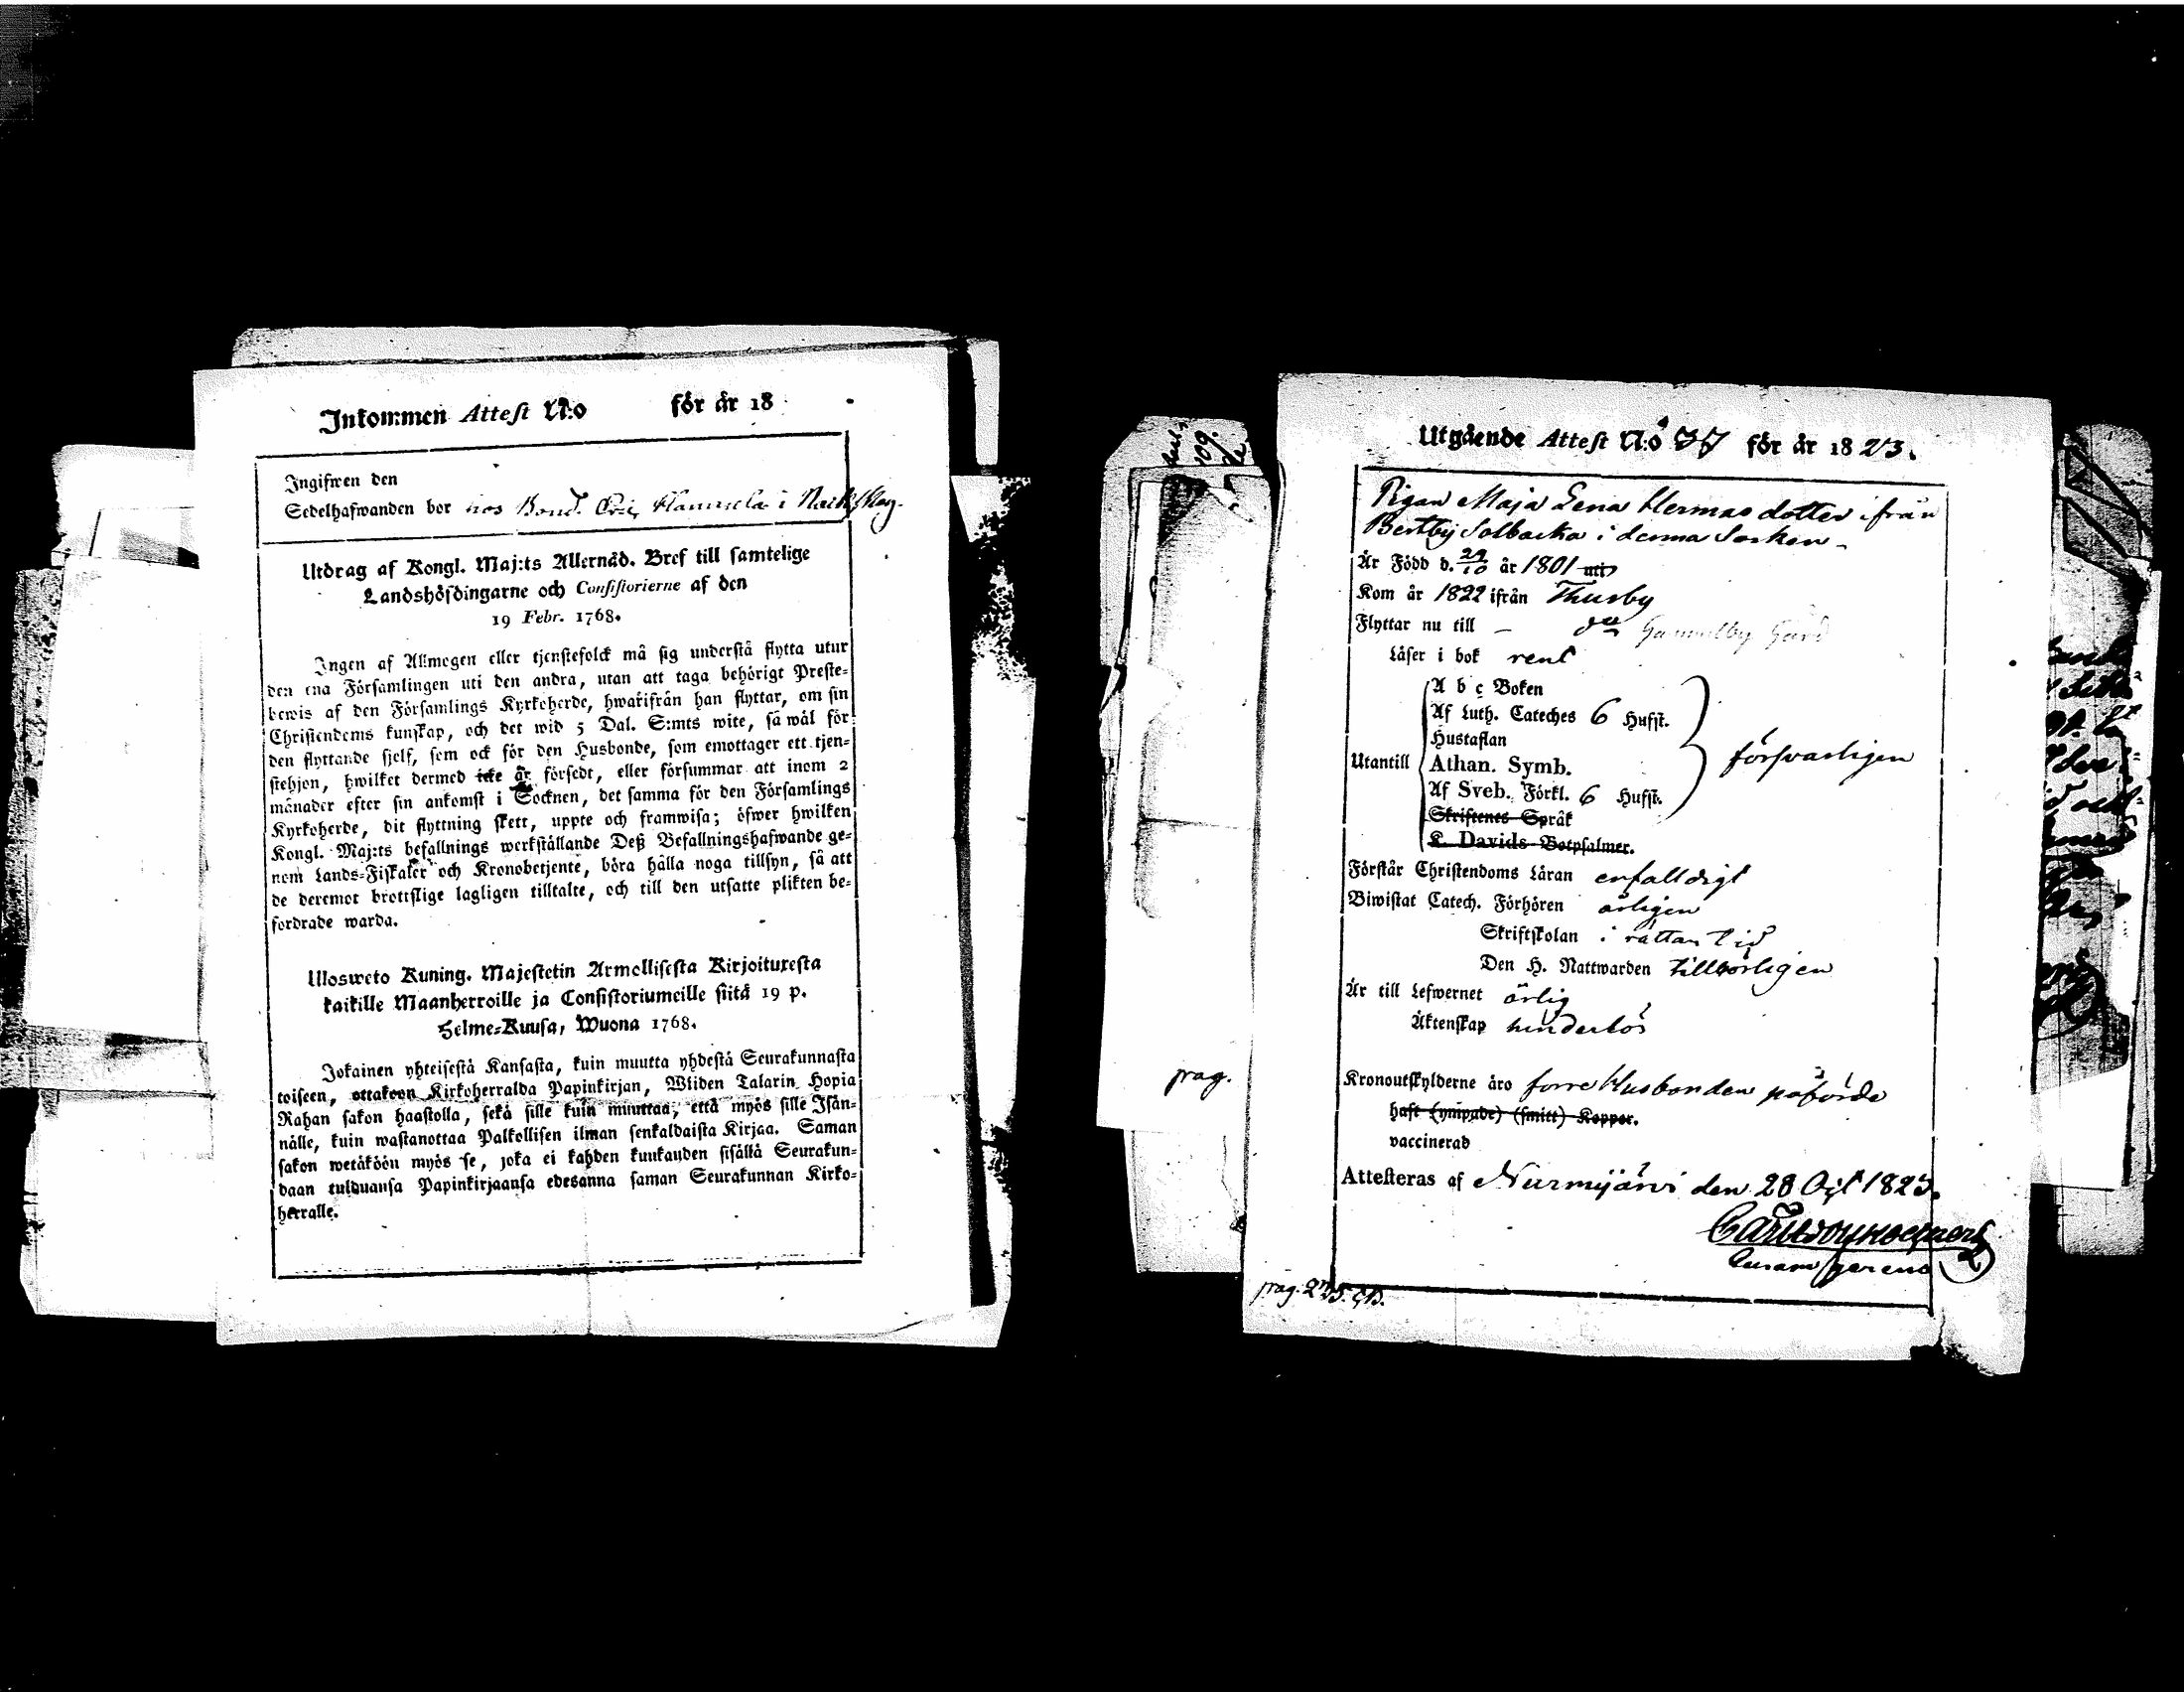 Inkommen Attest N:o för år 18
Ingifwen den
Sedelhafwanden bor hos Bond. Hannula i
Utdrag af Kongl. Maj:ts Allernåd. Bref till samtelige
Landshöfdingarne och Consistorierne af den
19 Febr. 1768.
Ingen af Allmogen eller tjenstefolck må sig understå flytta utur
den ena Församlingen uti den andra, utan att taga behörigt Preste-
bewis af den Församlings Kyrkoherde, hwarifrån han flyttar, om sin
Christendoms kunskap, och det wid 5 Dal. S:mts wite, så wäl för
den flyttande sjelf, som ock för den Husbonde, som emottager ett tjen-
stehjon, hwilket dermed icke är försedt, eller försummar att inom 2
månader efter sin ankomst i Socknen, det samma för den Församlings
Kyrkoherde, dit flyttning skett, uppte och framwisa; öfwer hwilken
Kongl. Maj:ts befallnings werkställande Deß Befallningshafwande ge-
nom Lands-Fiskaler och Kronobetjente, böra hålla noga tillsyn, så att
de deremot brottslige lagligen tilltalte, och till den utsatte plikten be-
fordrade warda.
Ulosweto Kuning. Majestetin Armollisesta Kirjoituxesta
kaikille Maanherroille ja Consistoriumeille siitä 19 p.
Helme-Kuusa, Wuona 1768.
Jokainen yhteisestä Kansasta, kuin muutta yhdestä Seurakunnasta
toiseen, ottakoon Kirkoherralda Papinkirjan, Wiiden Talarin Hopia
Rahan sakon haastolla, sekä sille kuin muuttaa, että myös sille Isän-
nälle, kuin wastanottaa Palkollisen ilman senkaldaista Kirjaa. Saman
sakon wetäköön myös se, joka ei kahden kuukauden sisällä Seurakun-
daan tulduansa Papinkirjaansa edesanna saman Seurakunnan Kirko-
herralle.
Utgående Attest N:o 37 för år 1823.
Pigan Maja Lena Hermansdotter ifrån
Bertby Solbacka i denna Socken
Är Född d. 29/10 år 1801 uti
Kom år 1822 ifrån Thusby
Flyttar nu till – do Gammelby Gård
Läser i bok rent
A b c Boken
Af Luth. Cateches 6 Hufst.
Hustaflan
Utantill Athan. Symb. försvarligen
Af Sveb. Förkl. 6 Hufst.
Skriftenes Språk
K. Davids Botpsalmer.
Förstår Christendoms Läran enfalldigt
Biwistat Catech. Förhören årligen
Skriftskolan i rättan tid
Den H. Nattwarden tillbörligen
Är till Lefwernet ärlig
Äktenskap hinderlös
Kronoutskylderne äro förre Husbonden påförde
haft (ympade) (smitt) Koppor.
vaccinerad
Attesteras af Nurmijärvi den 28 Oct 1823.
Curam gerens
pag.